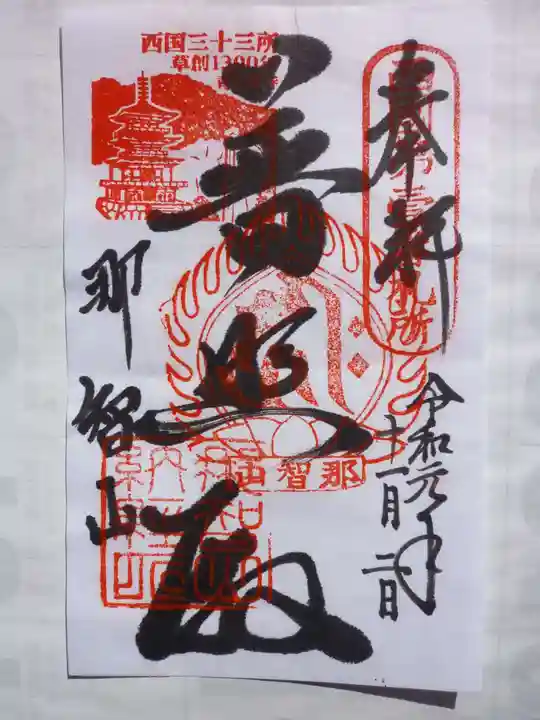 奉拝
令和元年
十一月二日
普照殿
那智山
西国三十三所
草創1300年
那智山